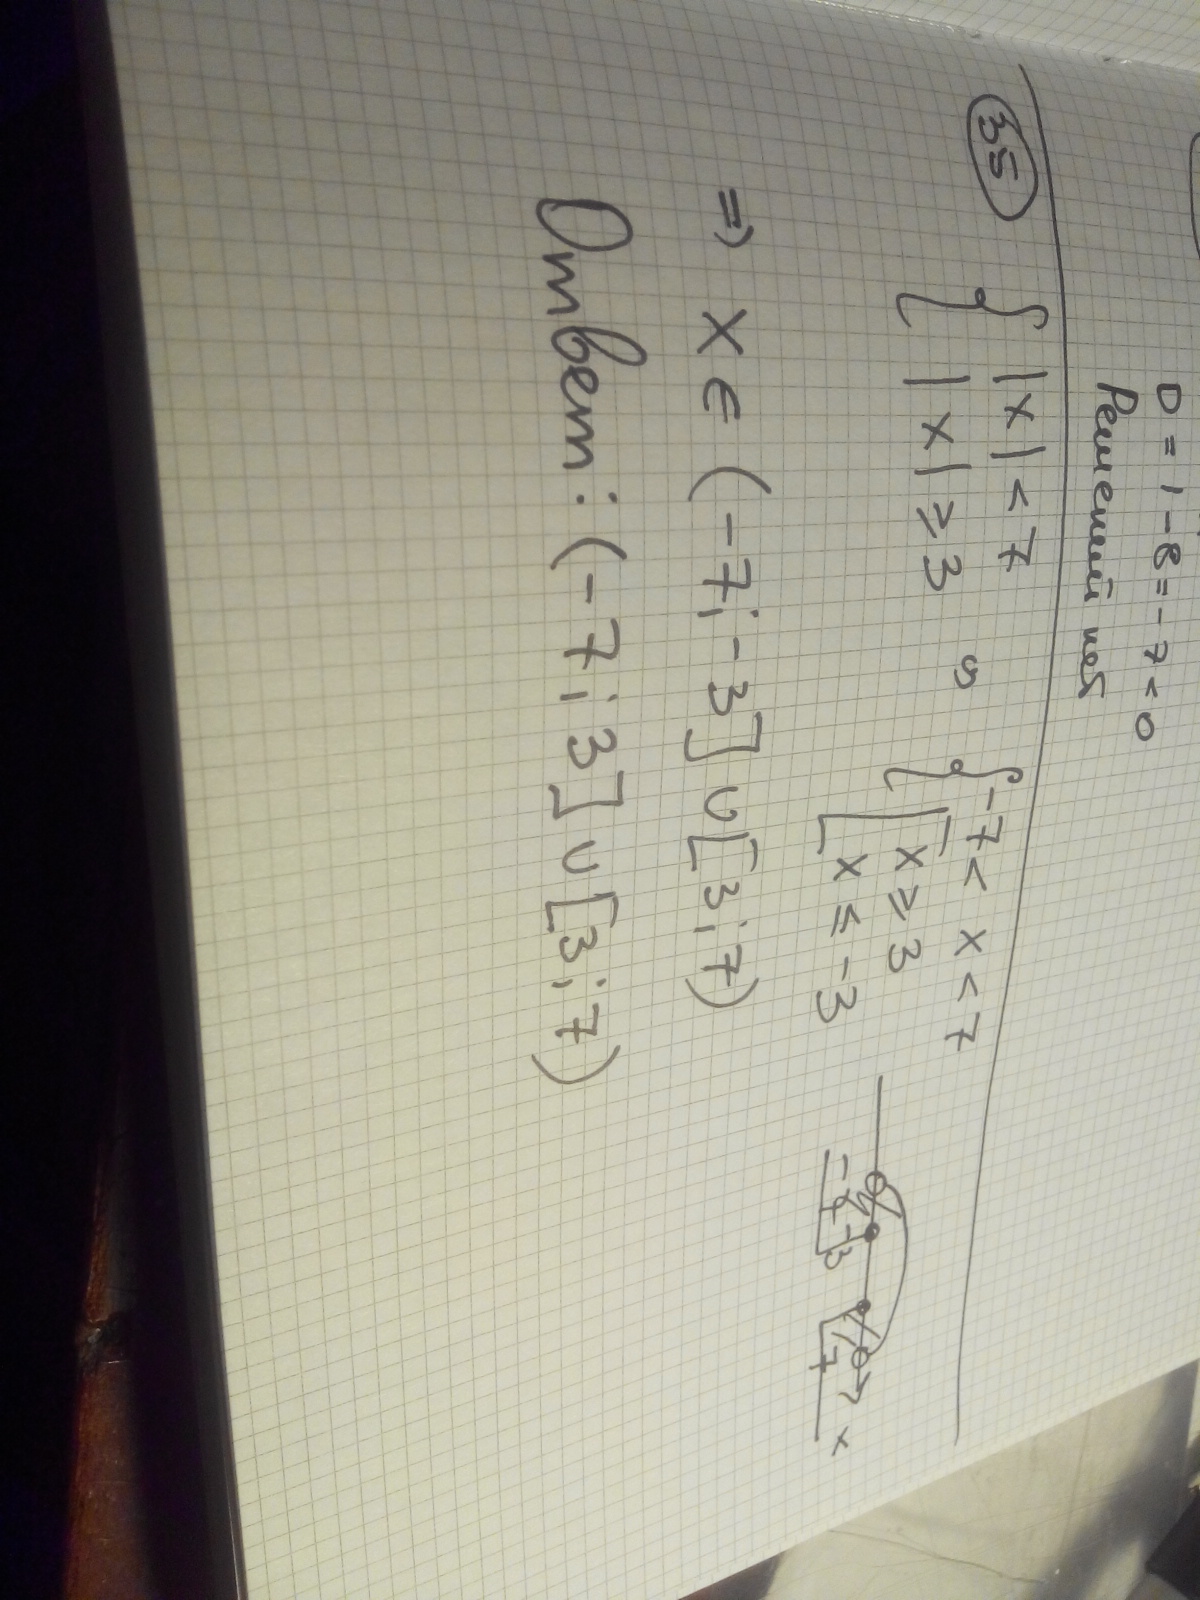 D = 1 - 8 = - 7 < 0
Решений нет
35
{ |x| < 7
|x| ≥ 3
⇔
{ -7 < x < 7
[ x ≥ 3
x ≤ -3
-7 -3 7 x
=> x ∈ (-7; -3] ∪ [3; 7)
Ответ: (-7; 3] ∪ [3; 7)